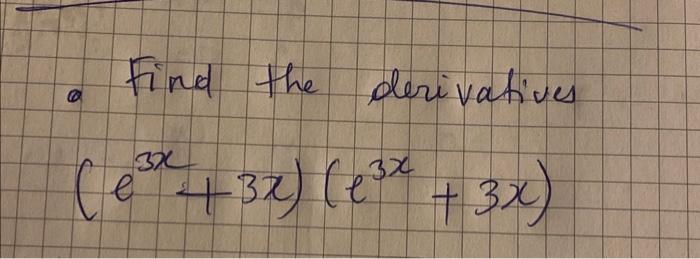 • Find the derivatives
(e³ˣ + 3x) (e³ˣ + 3x)